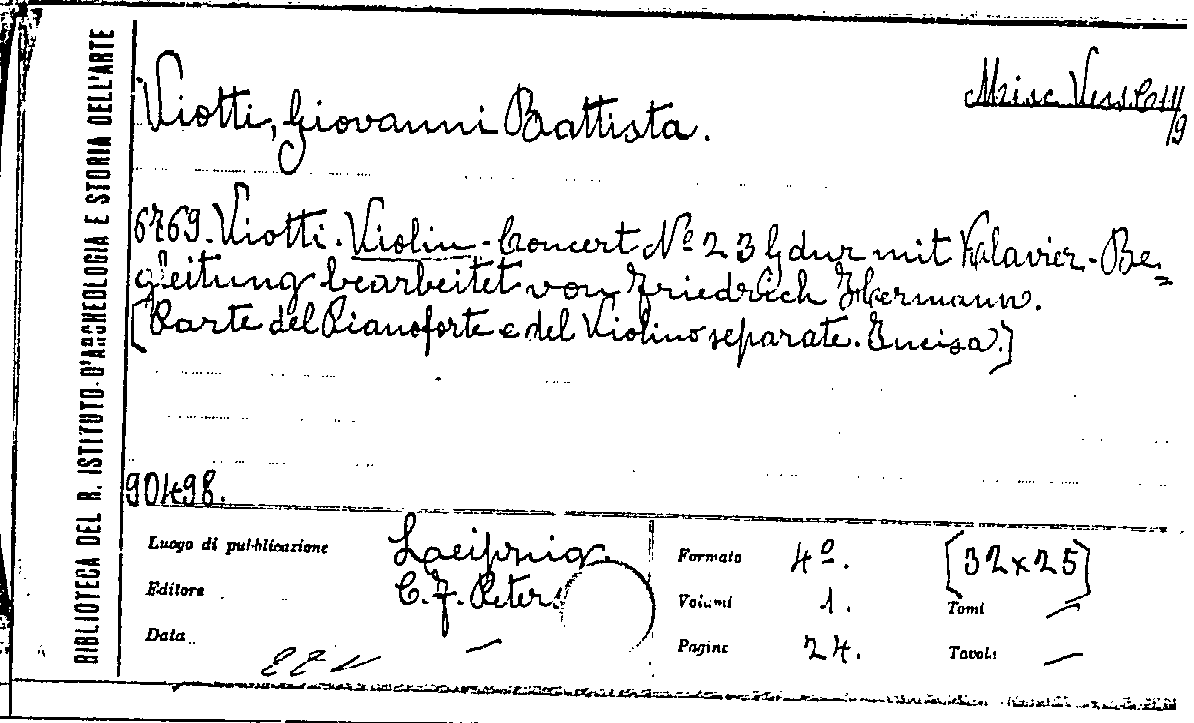 BIBLIOTECA DEL R. ISTITUTO D'ARCHEOLOGIA E STORIA DELL'ARTE
Viotti, Giovanni Battista.
Misc. Vess.
/9
6769. Viotti. Violin-Concert Nº 23 G dur mit Klavier-Be=
gleitung bearbeitet von Friedrich Hermann.
[Parte del Pianoforte e del Violino separate. Incisa.]
90498.
Luogo di pubblicazione Laeipzig.
Editore C. F. Peters
Data —
Formato 4º. [32x25]
Volumi 1. Tomi —
Pagine 24. Tavole —